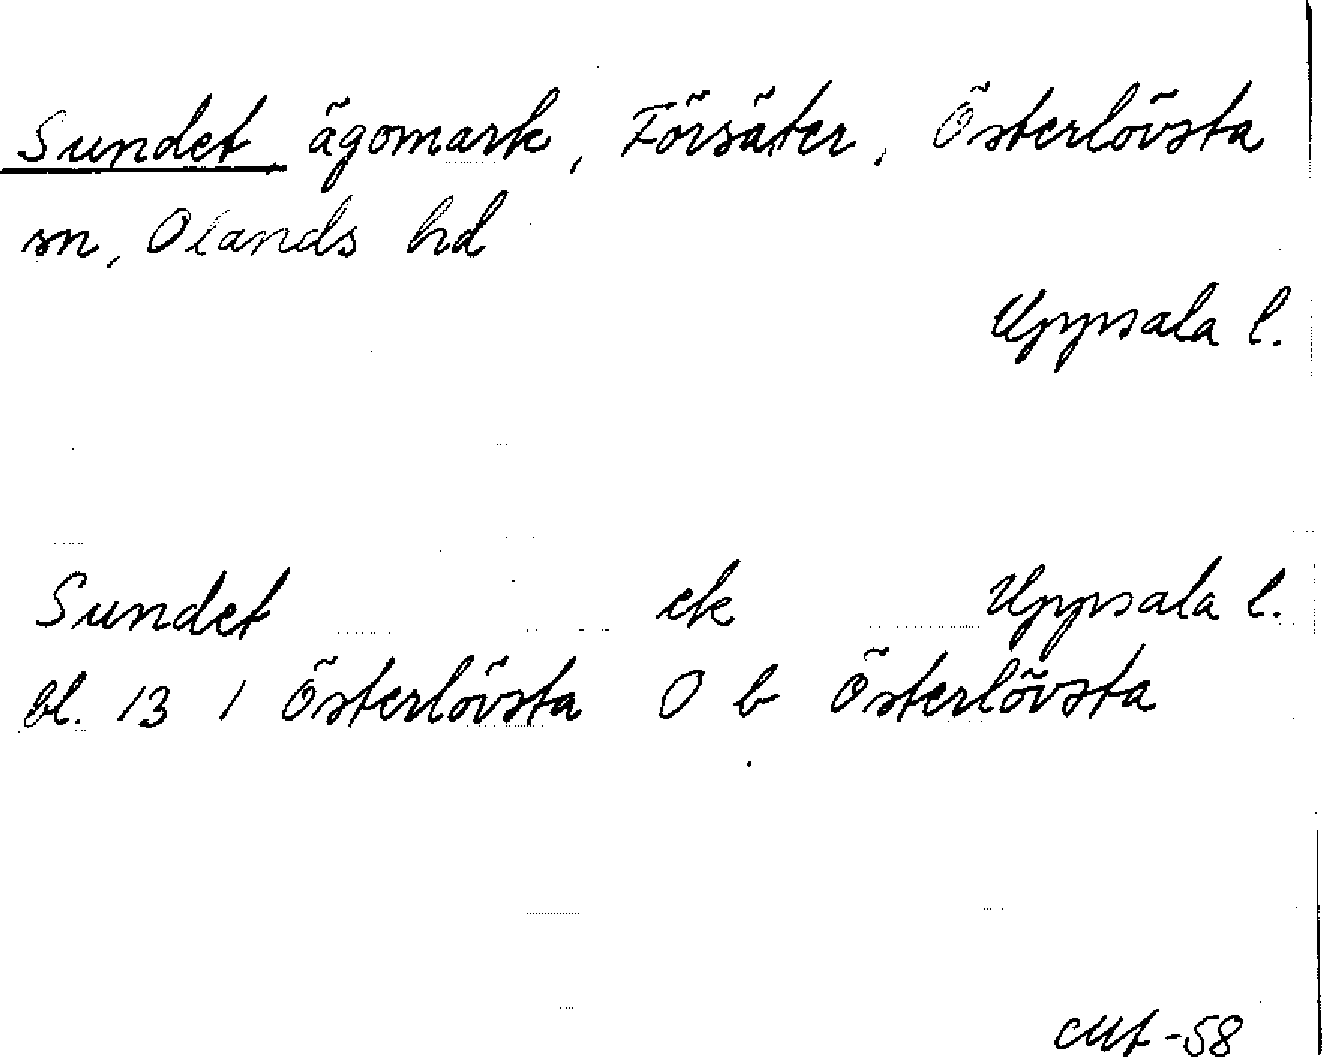 Sundet, ägomark, Försäter, Österlövsta
sn, Olands hd
Uppsala l.
Sundet ek Uppsala l.
bl. 13 I Österlövsta O b Österlövsta
-58